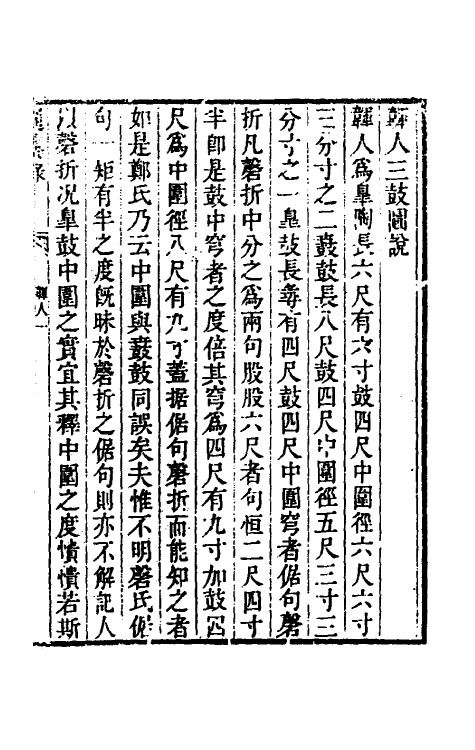 韗人三鼓圖說
韗人爲臯陶長六尺有六寸鼓四尺中圍徑六尺六寸
三分寸之二鼖鼓長八尺鼓四尺中圍徑五尺三寸三
分寸之一臯鼓長尋有四尺鼓四尺中圍穹者倨句磬
折凡磬折中分之爲兩句股股六尺者句恒二尺四寸
半卽是鼓中穹者之度倍其穹爲四尺有九寸加鼓四
尺爲中圍徑八尺有九寸蓋據倨句磬折而能知之者
如是鄭氏乃云中圍與鼖鼓同誤矣夫惟不明磬氏倨
句一矩有半之度旣昧於磬折之倨句則亦不解記人
以磬折况臯鼓中圍之實宜其釋中圍之度憒憒若斯
韗人一